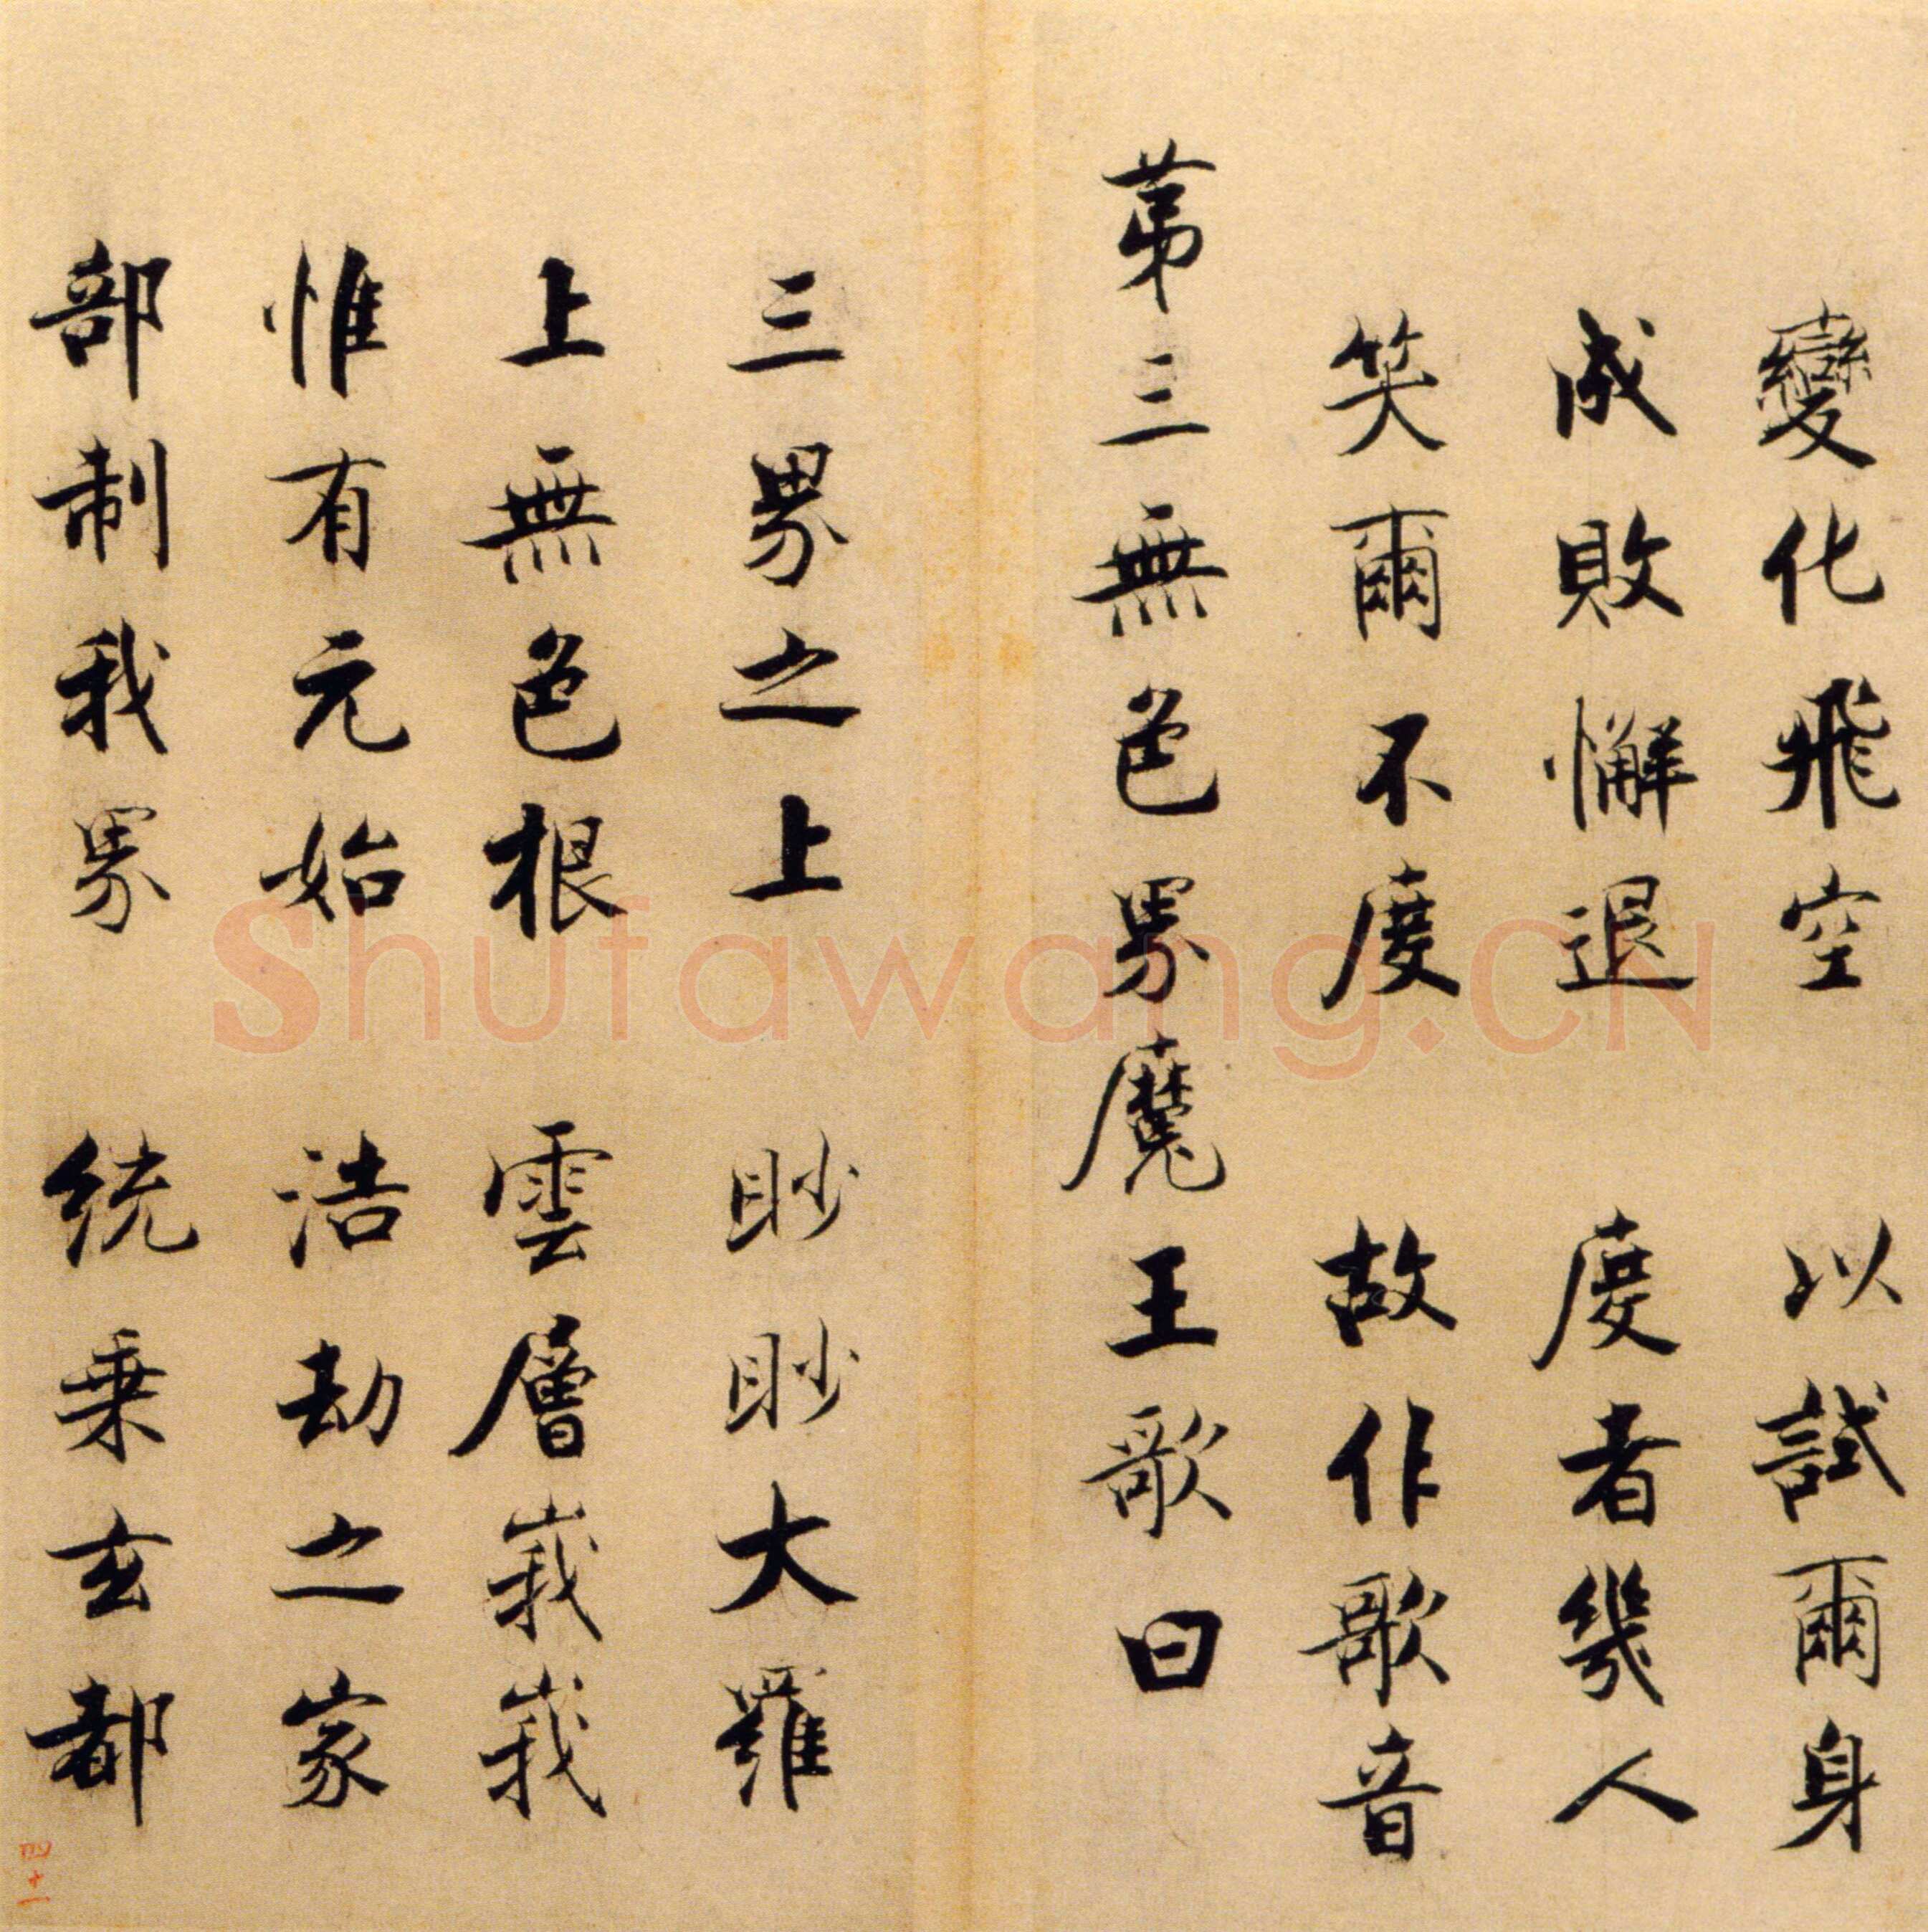 變化飛空 以試爾身
成敗懈退 度者幾人
笑爾不度 故作歌音
第三無色界魔王歌曰
三界之上 眇眇大羅
上無色根 雲層峩峩
惟有元始 浩劫之家
部制我界 統乗玄都
四十一
Shufawang.CN